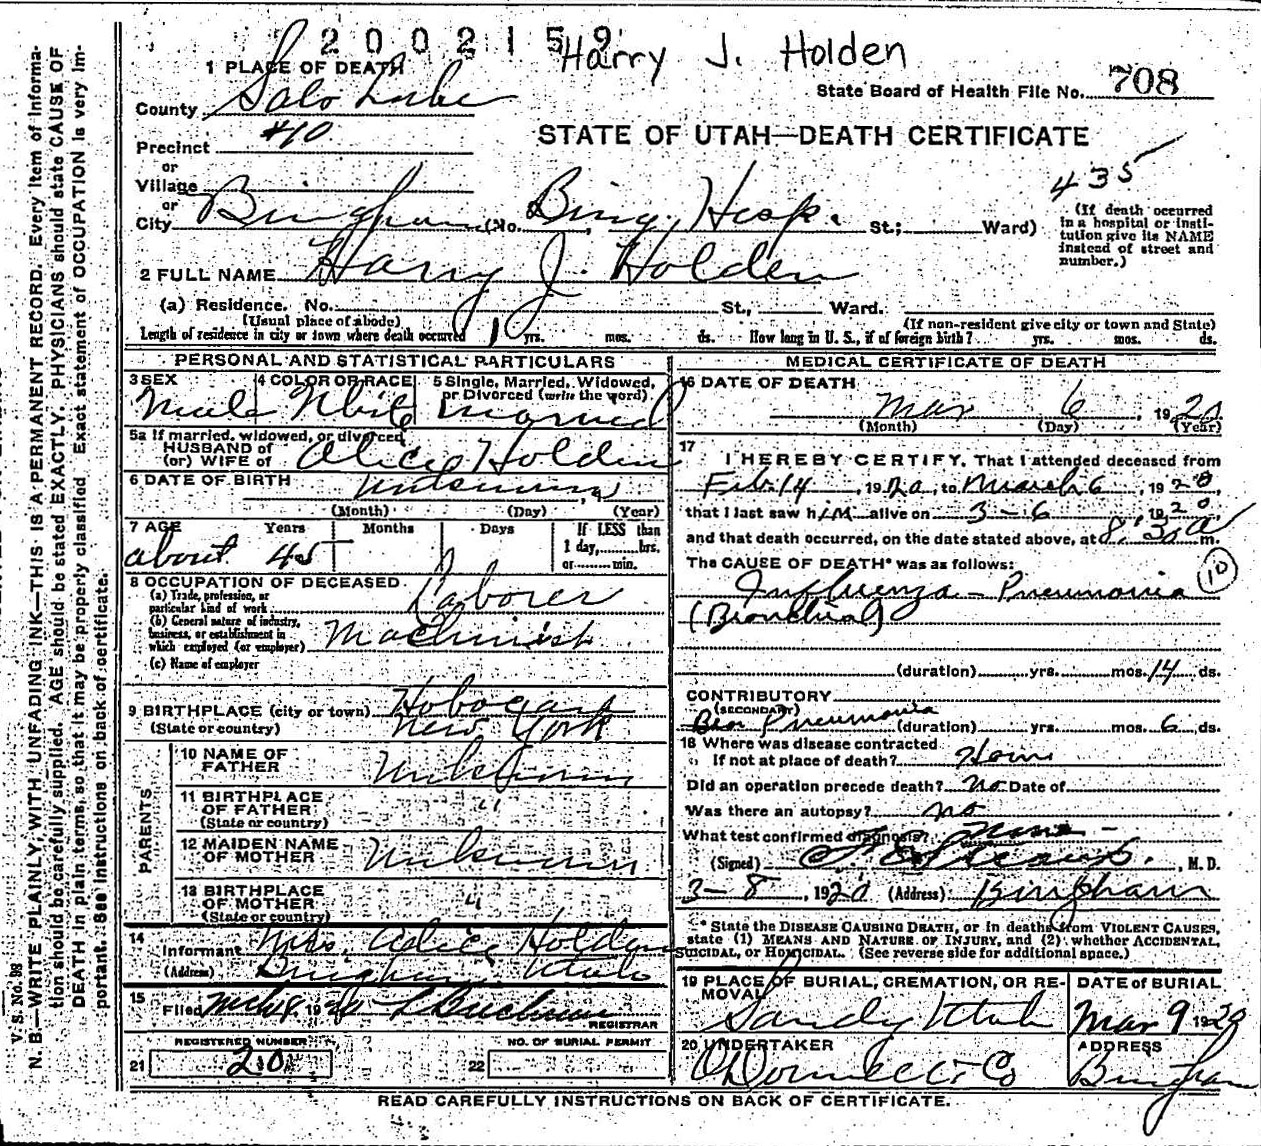 2002159
Harry J. Holden
1 PLACE OF DEATH
County Salt Lake
State Board of Health File No. 708
Precinct #10
STATE OF UTAH—DEATH CERTIFICATE
or
Village
435
or
City Bingham (No. Bing. Hosp. St.; Ward)
(If death occurred in a hospital or institution give its NAME instead of street and number.)
2 FULL NAME Harry J. Holden
(a) Residence. No. St., Ward.
(Usual place of abode) (If non-resident give city or town and State)
Length of residence in city or town where death occurred 10 yrs. mos. ds. How long in U. S., if of foreign birth? yrs. mos. ds.
PERSONAL AND STATISTICAL PARTICULARS
3 SEX Male
4 COLOR OR RACE White
5 Single, Married, Widowed, or Divorced (write the word) Married
5a If married, widowed, or divorced
HUSBAND of
(or) WIFE of Alice Holden
6 DATE OF BIRTH Unknown
(Month) (Day) (Year)
7 AGE Years Months Days If LESS than
about 45 1 day, hrs.
or min.
8 OCCUPATION OF DECEASED
(a) Trade, profession, or
particular kind of work Laborer
(b) General nature of industry,
business, or establishment in
which employed (or employer) Machinist
(c) Name of employer
9 BIRTHPLACE (city or town)
(State or country) New York
PARENTS
10 NAME OF FATHER Unknown
11 BIRTHPLACE OF FATHER "
(State or country)
12 MAIDEN NAME OF MOTHER Unknown
13 BIRTHPLACE OF MOTHER "
(State or country)
14
Informant Mrs. Alice Holden
(Address) Bingham Utah
15
Filed Mch 8 1920 Buchman
REGISTRAR
REGISTERED NUMBER NO. OF BURIAL PERMIT
21 20 22
MEDICAL CERTIFICATE OF DEATH
16 DATE OF DEATH
Mar 6, 1920
(Month) (Day) (Year)
17
I HEREBY CERTIFY, That I attended deceased from
Feb. 14, 1920, to March 6, 1920,
that I last saw him alive on 3-6, 1920
and that death occurred, on the date stated above, at 8:30 a m.
The CAUSE OF DEATH* was as follows:
Influenza - Pneumonia 10
(Bronchial)
(duration) yrs. mos. 14 ds.
CONTRIBUTORY
(SECONDARY)
Pneumonia (duration) yrs. mos. 6 ds.
18 Where was disease contracted
If not at place of death? Home
Did an operation precede death? No Date of
Was there an autopsy? No
What test confirmed diagnosis? None -
(Signed) , M. D.
3-8, 1920 (Address) Bingham
* State the DISEASE CAUSING DEATH, or in deaths from VIOLENT CAUSES,
state (1) MEANS AND NATURE OF INJURY, and (2) whether ACCIDENTAL,
SUICIDAL, or HOMICIDAL. (See reverse side for additional space.)
19 PLACE OF BURIAL, CREMATION, OR REMOVAL DATE of BURIAL
Sandy Utah Mar 9 1920
20 UNDERTAKER ADDRESS
O'Donnell & Co Bingham
READ CAREFULLY INSTRUCTIONS ON BACK OF CERTIFICATE.
V. S. No. 98
N. B.—WRITE PLAINLY, WITH UNFADING INK—THIS IS A PERMANENT RECORD. Every item of Informa-
tion should be carefully supplied. AGE should be stated EXACTLY. PHYSICIANS should state CAUSE OF
DEATH in plain terms, so that it may be properly classified. Exact statement of OCCUPATION is very im-
portant. See instructions on back of certificate.